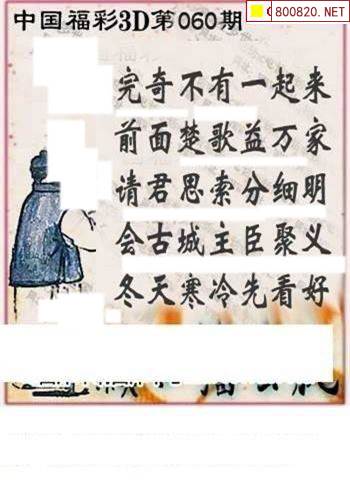 中国福彩3D第060期
800820.NET
完奇不有一起来
前面楚歌益万家
请君思索分细明
会古城主臣聚义
冬天寒冷先看好